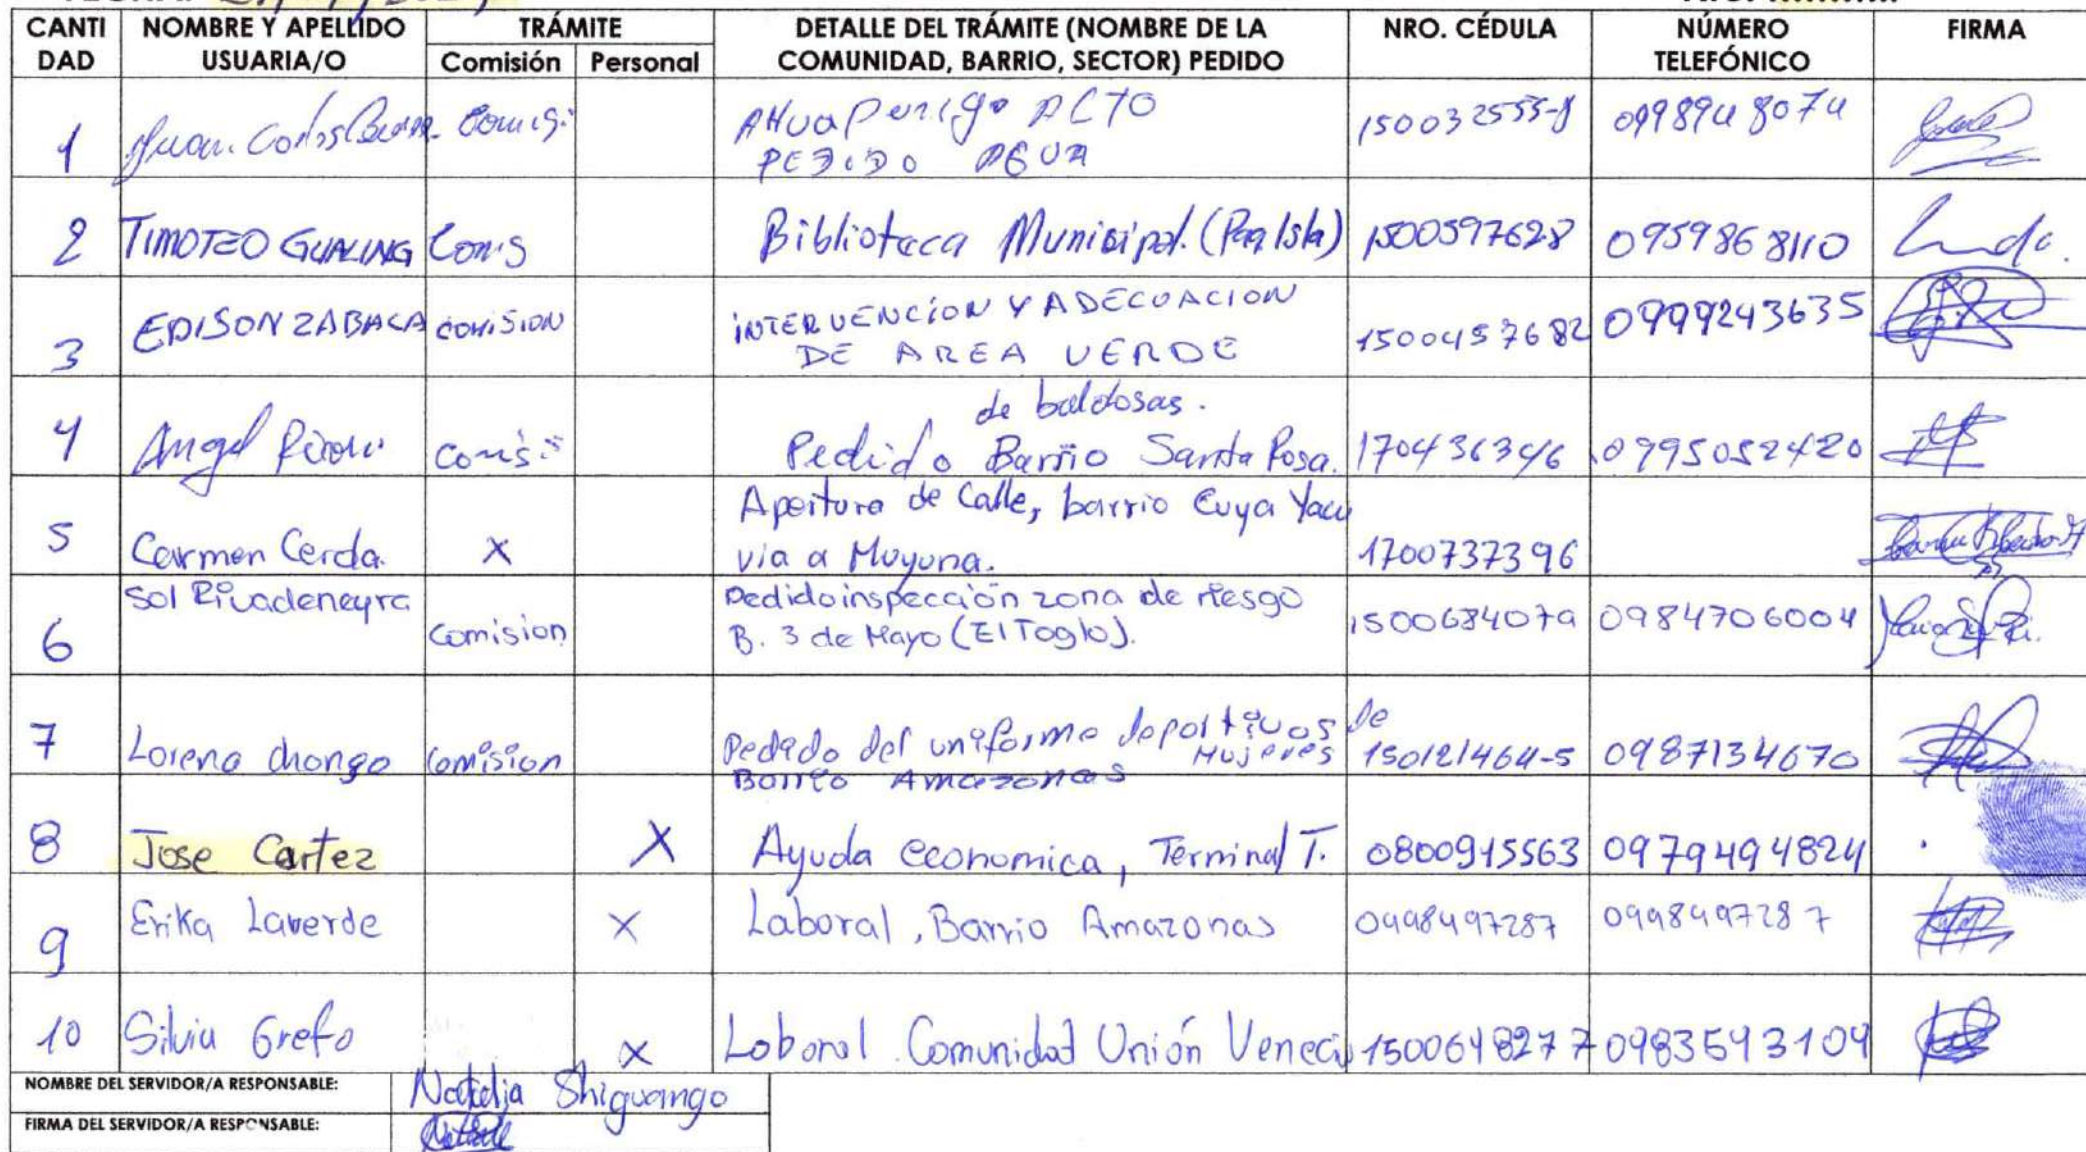 CANTI DAD NOMBRE Y APELLIDO USUARIA/O TRÁMITE Comisión Personal DETALLE DEL TRÁMITE (NOMBRE DE LA COMUNIDAD, BARRIO, SECTOR) PEDIDO NRO. CÉDULA NÚMERO TELEFÓNICO FIRMA
1 Juan. Carlos Comisi. ALTO 150032555-8 0998948074
PEDIDO AGUA
2 TIMOTEO GUALING Comis Biblioteca Municipal. 1500597628 0959868110
3 EDISON ZABALA COMISION INTERVENCION Y ADECUACION 1500457682 0999243635
DE AREA VERDE
de baldosas.
4 Angel Comisi Pedido Barrio Santa Rosa. 170436346 0995052420
Apertura de Calle, barrio Cuya Yacu
5 Carmen Cerda. X via a Muyuna. 1700737396
Sol Rivadeneyra Pedido inspección zona de riesgo
6 Comision B. 3 de Mayo (El Toglo). 1500684079 0984706004
7 Lorena chongo Comision Pedido del uniforme deportivos de 150121464-5 0987134670
Mujeres
Barrio Amazonas
8 Jose Cartez X Ayuda economica, Terminal T. 0800915563 0979494824
9 Erika Laverde X Laboral, Barrio Amazonas 0998497287 0998497287
10 Silvia Grefo X Laboral. Comunidad Unión Veneci 1500648277 0983593109
NOMBRE DEL SERVIDOR/A RESPONSABLE: Natalia Shiguango
FIRMA DEL SERVIDOR/A RESPONSABLE: